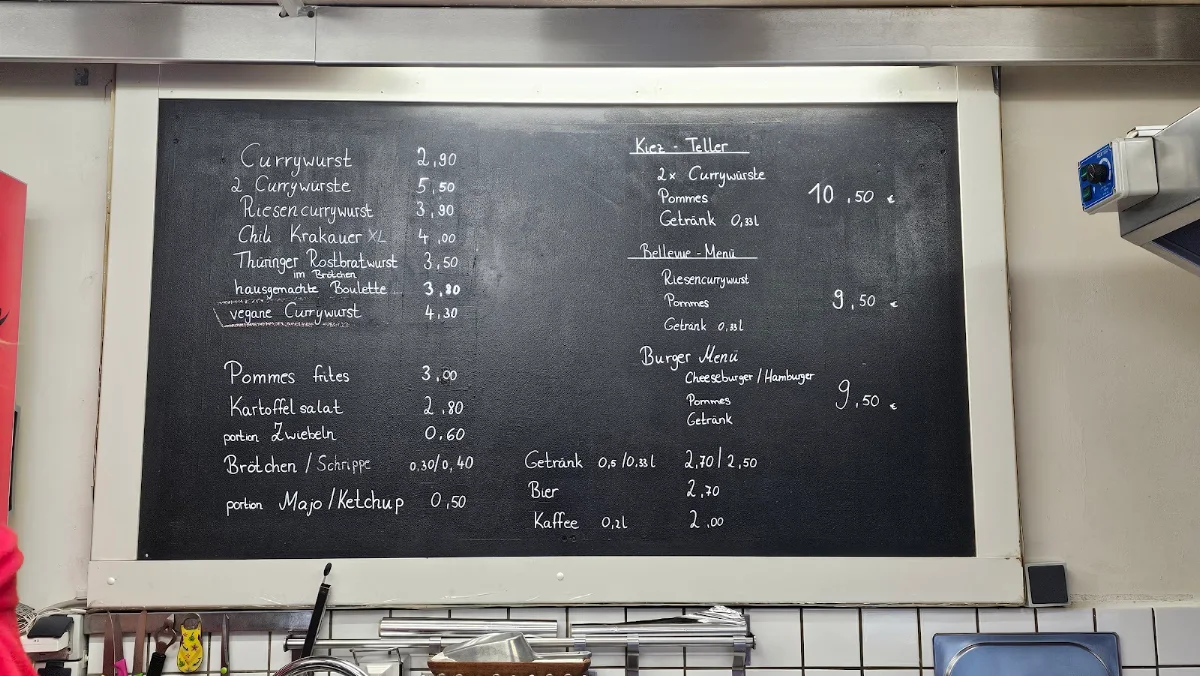 Currywurst 2,90
2 Currywürste 5,50
Riesencurrywurst 3,90
Chili Krakauer XL 4,00
Thüringer Rostbratwurst 3,50
im Brötchen
hausgemachte Boulette 3,80
vegane Currywurst 4,30
Pommes frites 3,00
Kartoffelsalat 2,80
portion Zwiebeln 0,60
Brötchen / Schrippe 0,30/0,40
portion Majo / Ketchup 0,50
Kiez - Teller
2x Currywürste
Pommes 10,50 €
Getränk 0,33l
Bellevue - Menü
Riesencurrywurst
Pommes 9,50 €
Getränk 0,33l
Burger Menü
Cheeseburger / Hamburger
Pommes 9,50 €
Getränk
Getränk 0,5/0,33l 2,70 / 2,50
Bier 2,70
Kaffee 0,2l 2,00